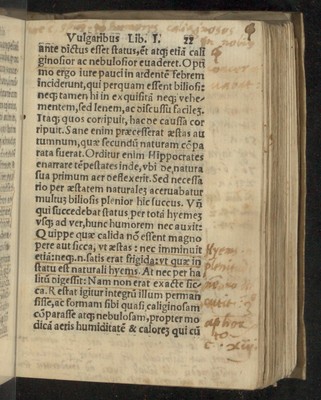 Vulgaribus Lib. I. 22
ante dictus esset status, et atq; etiã cali
ginosior ac nebulosior euaderet. Opti
mo ergo iure pauci in ardentẽ febrem
inciderunt, qui perquam essent biliosi:
neq; tamen hi in exquisitã neq; vehe-
mentem, sed lenem, ac discussu facilez.
Itaq; quos corripuit, hac de caussa cor
ripuit. Sane enim præcesserat æstas au
tumnum, quæ secundũ naturam cõpa
rata fuerat. Orditur enim Hippocrates
enarrare tẽpestates inde, vbi de natura
sua primum aer deflexerit. Sed necessa
rio per æstatem naturalez aceruabatur
multuz biliosis plenior hic succus. Vñ
qui succedebat status per totã hyemez
vsq; ad ver, hunc humorem nec auxit:
Quippe quæ calida nõ essent magno
pere aut sicca, vt æstas: nec imminuit
etiã: neq;.n. satis erat frigida: vt quæ in
statu est naturali hyems. At nec per ha
litũ digessit: Nam non erat exacte sic-
ca. Restat igitur integrũ illum perman
sisse, ac formam sibi quasi caliginosam
cõparasse atq; nebulosam, propter mo
dicã aeris humiditatẽ & calorez qui cũ
Hyems